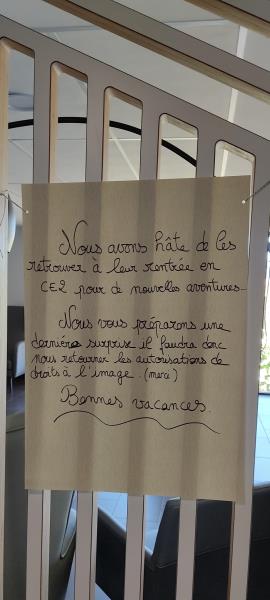 Nous avons hâte de les
retrouver à leur rentrée en
CE2 pour de nouvelles aventures.
Nous vous préparons une
dernière surprise il faudra donc
nous retourner les autorisations de
droits à l'image. (merci)
Bonnes vacances.